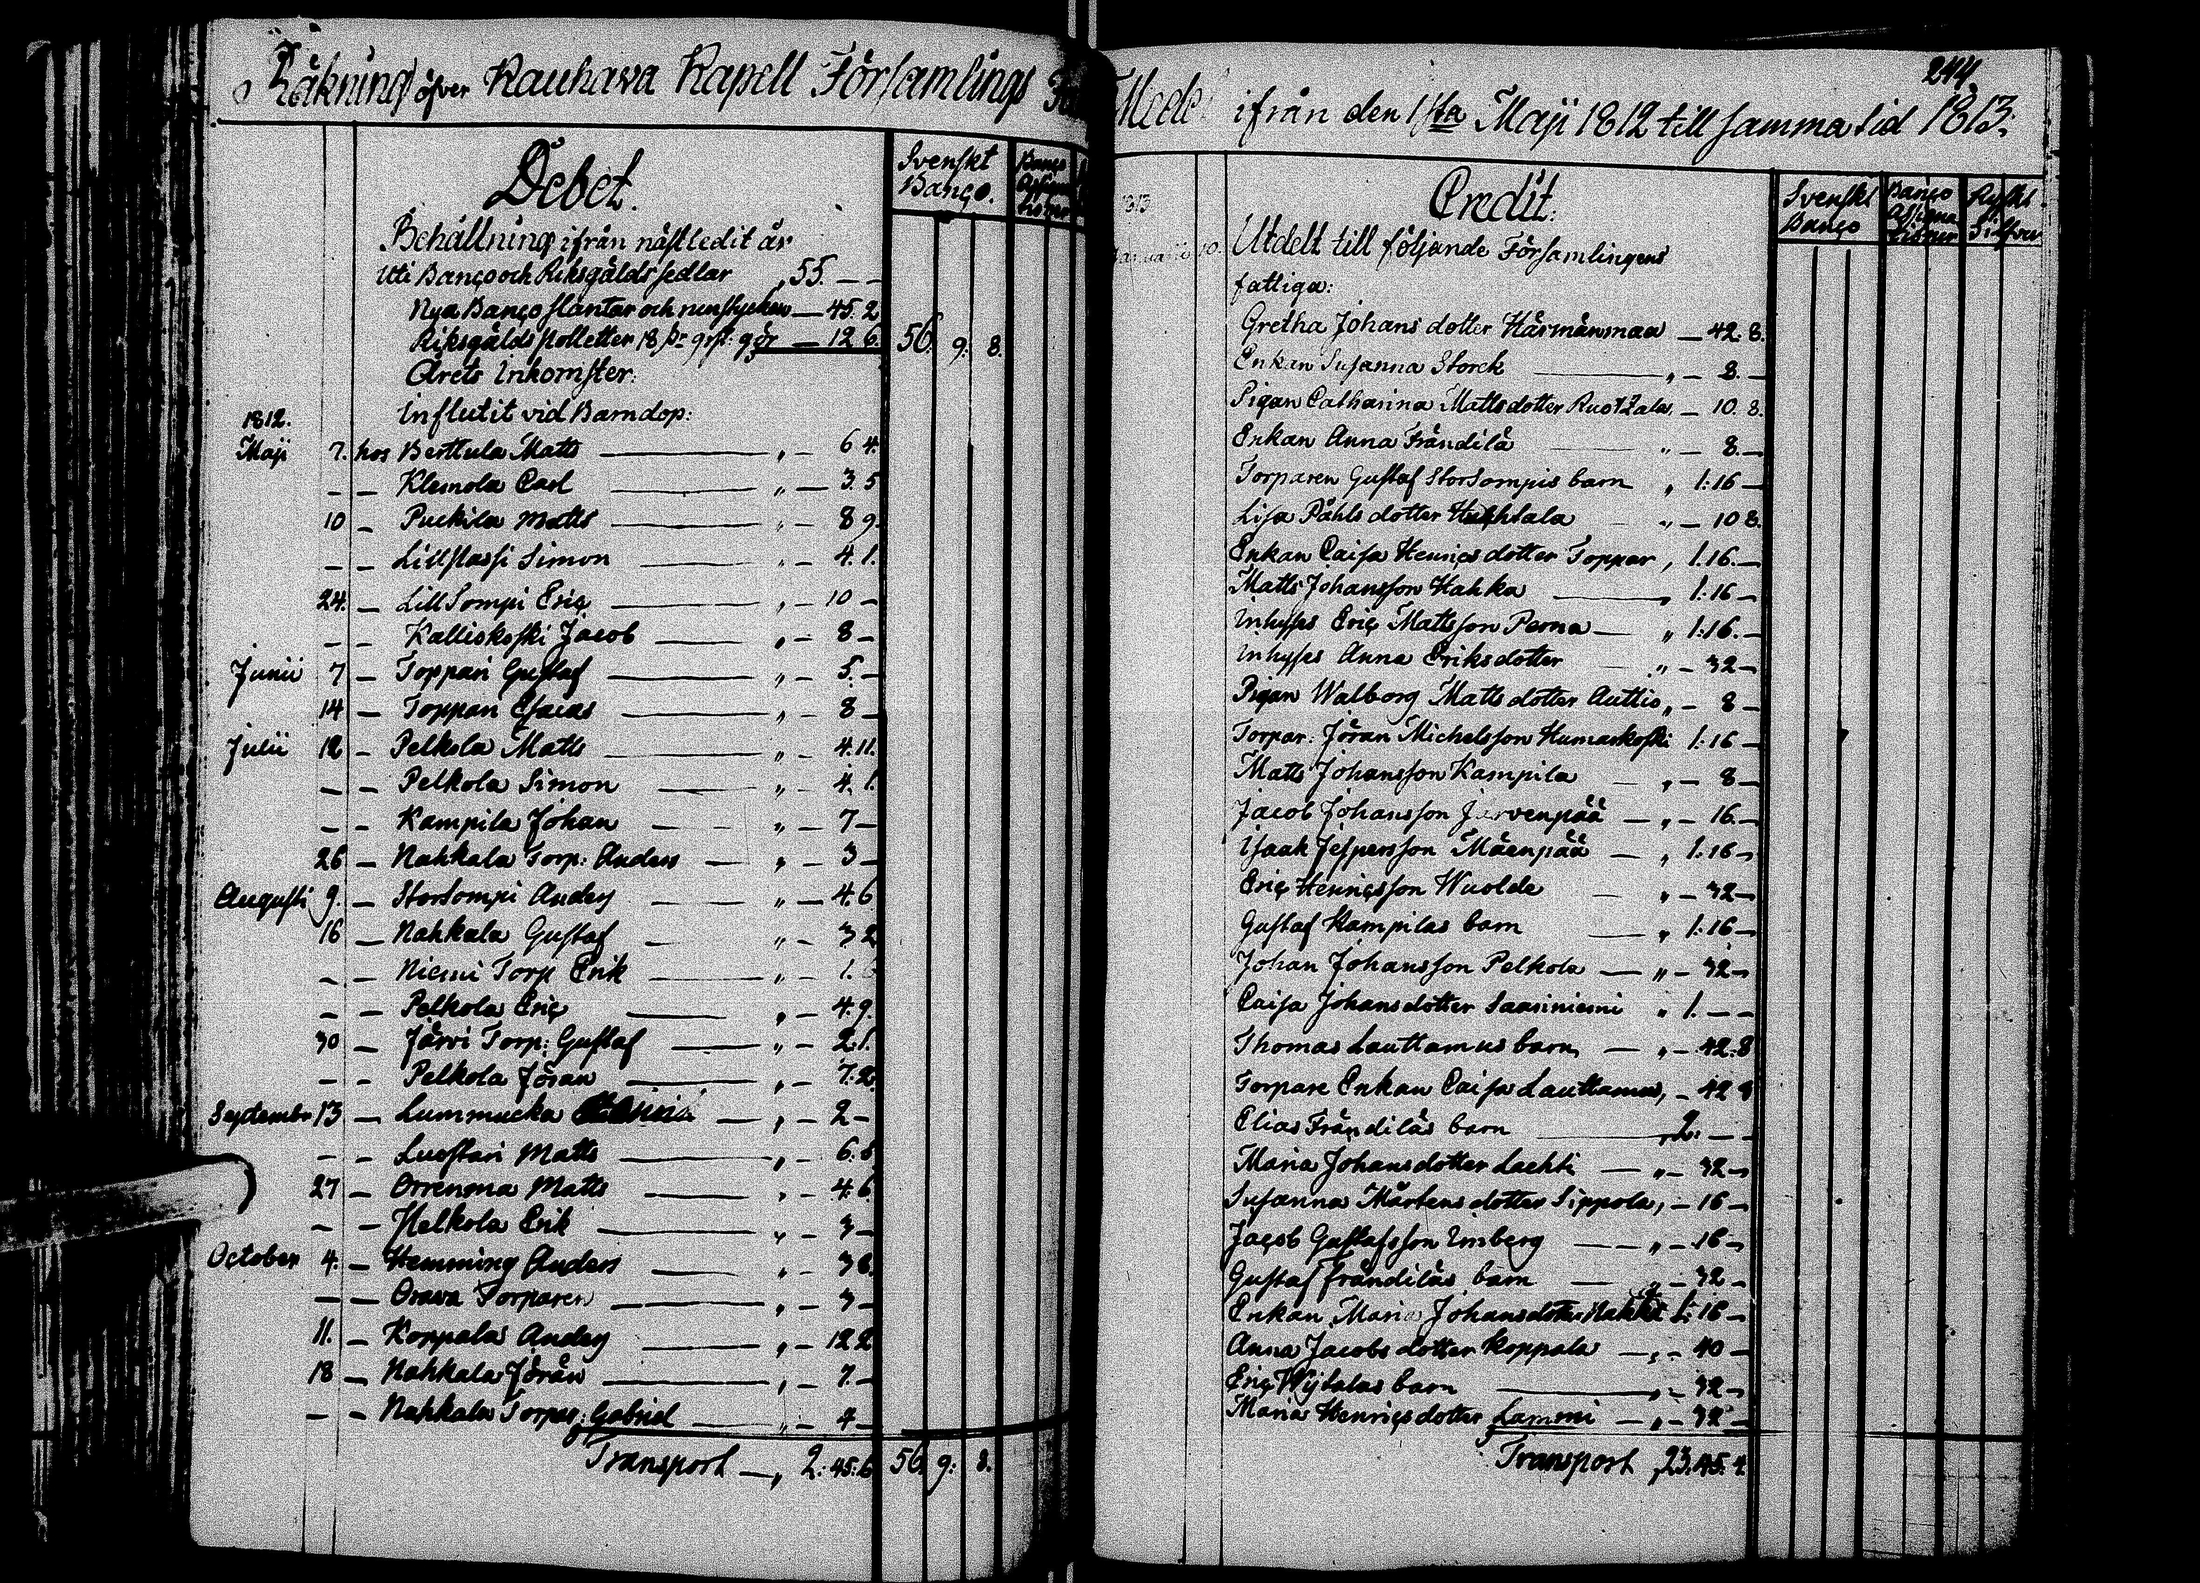 Räkning öfver Kauhava Kapell Församlings
Debet.
Svenskt Banço.
Banço Assigna tioner
Behållning ifrån nästledit år
Uti Banço och Riksgäldssedlar „ 55. — —
Nya Banço slantar och runstycken — 45. 2
Riksgälds polletter 18 st. grst: gör — 12 6. 56. 9: 8.
Årets Inkomster:
1812. Influtit vid Barndop:
Maji 7. hos Berttula Matts — „ — 6 4.
— — Klemola Carl — „ — 3. 5
10 — Puckila Matts — „ — 8 9.
— — Lillstassi Simon — „ — 4. 1.
24. — LillSompi Eriç — „ — 10 —
— — Kalliokoski Jacob — „ — 8 —
Junii 7 — Toppari Gustaf — „ — 5. —
14 — Toppari Esaias — „ — 8 —
Julii 12 — Pelkola Matts — „ — 4. 11.
— — Pelkola Simon — „ — 4. 1.
— — Kampila Johan — „ — 7 —
26 — Nahkala Torp: Anders — „ — 3 —
Augusti 9. — StorSompi Anders — „ — 4. 6
16 — Nahkala Gustaf — „ — 3 2
— — Niemi Torp Erik — „ — 1. 6
— — Pelkola Eriç — „ — 4. 9.
30 — Järvi Torp: Gustaf — „ — 2. 1.
— — Pelkola Jöran — „ — 7. 2.
Septembr 13 — Lummucka — „ — 2 —
— — Luostari Matts — „ — 6. 8.
27 — Orrenma Matts — „ — 4. 6
— — Helkola Erik — „ — 3 —
October 4. — Hemming Anders — „ — 3 6.
— — Orava Torparen — „ — 3 —
11. — Koppalas Anders — „ — 12 2
18 — Nahkala Jöran — „ — 7. —
— — Nahkala Torpar: Gabriel — „ — 4 —
Transport — „ 2. 45. 6 56. 9: 8.
244
Medel ifrån den 1sta Maji 1812 till samma tid 1813.
Credit.
Svenskt Banço
Banço Assigna tioner
Ryskt Silfver
1813
Januarii 10. Utdelt till följande Församlingens
fattiga:
Gretha Johansdotter Härmänmaa — 42. 8.
Enkan Susanna Storck — „ — 8. —
Pigan Catharina Mattsdotter — 10. 8.
Enkan Anna Frändilä „ — 8. —
Torparen Gustaf StorSompis barn „ 1: 16 —
Lisa Påhlsdotter „ — 10 8.
Enkan Caisa Henriçsdotter Toppar, 1. 16. —
Matts Johansson Hahka — „ 1: 16 —
Inhyses Eriç Mattsson Perna — „ 1: 16. —
Inhyses Anna Eriksdotter „ — 32 —
Pigan Walborg Mattsdotter Auttio „ — 8 —
Torpar: Jöran Michelsson Humaskoski 1: 16 —
Matts Johansson Kampila — „ — 8 —
Jacob Johansson Järvenpää — „ — 16. —
Isaak Jespersson Mäenpää — „ 1: 16 —
Eriç Henriçsson Wuolde — „ — 32 —
Gustaf Kampilas barn — „ 1: 16 —
Johan Johansson Pelkola — „ — 32 —
Caisa Johansdotter Saariniemi „ 1. — —
Thomas Lauttamus barn, — „ — 42. 8
Torpare Enkan Caisa Lauttamus, — 42 8
Elias Frändiläs barn — „ 2. — —
Maria Johansdotter Laehti — „ — 32 —
Susanna Mårtensdotter Sippola, — 16 —
Jacob Gustafsson Imberg — „ — 16 —
Gustaf Frändiläs barn — „ — 32 —
Enkan Maria Johansdotter 1: 16 —
Anna Jacobsdotter Koppala — „ — 40 —
Eriç Wijtalas barn — „ — 32 —
Maria Henriçsdotter Lammi — „ — 32 —
Transport „ 23. 45. 4.